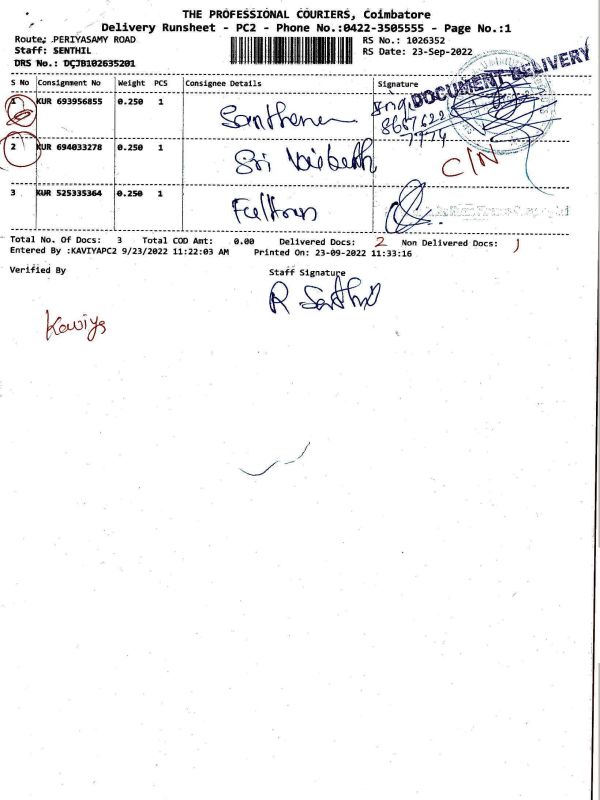 THE PROFESSIONAL COURIERS, Coimbatore
Delivery Runsheet - PC2 - Phone No.:0422-3505555 - Page No.:1
Route: PERIYASAMY ROAD RS No.: 1026352
Staff: SENTHIL RS Date: 23-Sep-2022
DRS No.: DCJB102635201
S No Consignment No Weight PCS Consignee Details Signature
DOCUMENT DELIVERY
1 KUR 693956855 0.250 1
8667622
7774
2 KUR 694033278 0.250 1 Sri C/N
3 KUR 525335364 0.250 1
Total No. Of Docs: 3 Total COD Amt: 0.00 Delivered Docs: 2 Non Delivered Docs: 1
Entered By :KAVIYAPC2 9/23/2022 11:22:03 AM Printed On: 23-09-2022 11:33:16
Verified By Staff Signature
R Senthil
Kaviya